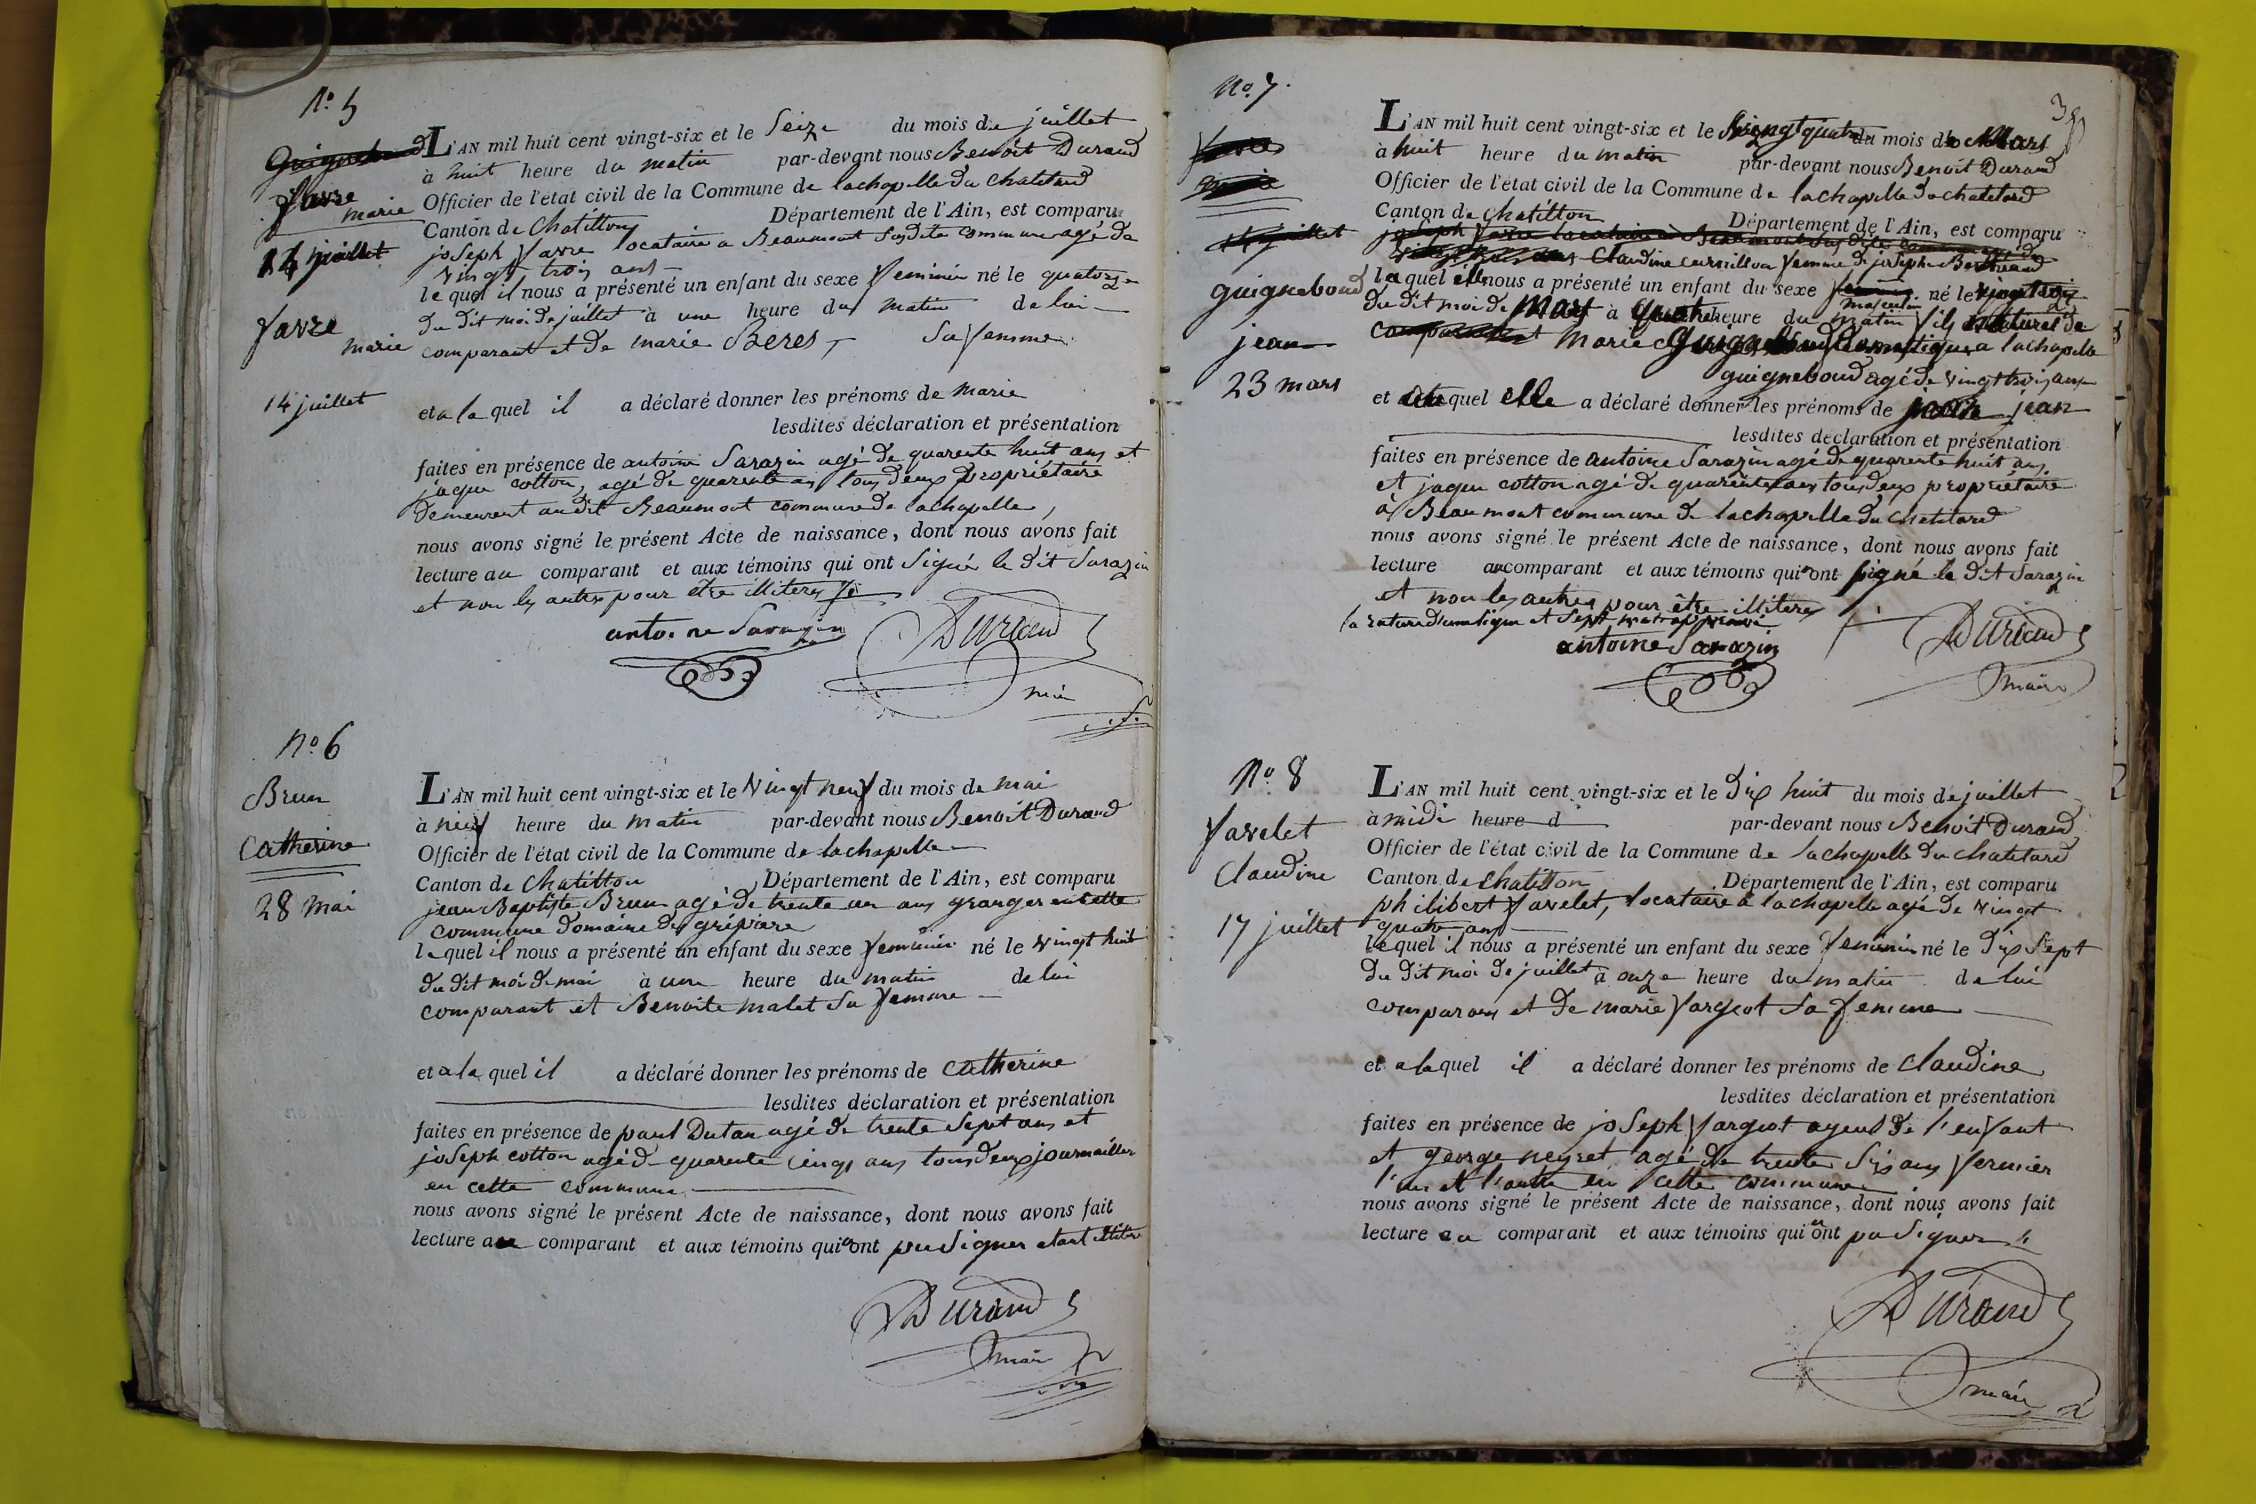 N.o 5
Favre
marie
14 juillet
Favre
marie
14 juillet
L'AN mil huit cent vingt-six et le Seize du mois de juillet
à huit heure du matin par-devant nous Benoit Durand
Officier de l'état civil de la Commune de lachapelle du chatelard
Canton de Chatillon Département de l'Ain, est comparu
joseph Favre locataire a Beaumont susdite commune agé de
vingt trois ans
lequel il nous a présenté un enfant du sexe feminin né le quatorze
du dit moi de juillet à une heure du matin de lui
comparant et de marie Beres, sa femme
et a la quel il a déclaré donner les prénoms de marie
lesdites déclaration et présentation
faites en présence de antoine Sarazin agé de quarente huit ans et
jaque cotton, agé de quarente ans tous deux propriétaire
demeurent au dit Beaumont commune de lachapelle,
nous avons signé le présent Acte de naissance, dont nous avons fait
lecture au comparant et aux témoins qui ont signé le dit Sarazin
et non les autres pour être illiteres
antoine Sarazin
Durand
N.o 6
Brun
Catherine
28 mai
L'AN mil huit cent vingt-six et le vingt neuf du mois de mai
à neuf heure du matin par-devant nous Benoit Durand
Officier de l'état civil de la Commune de lachapelle
Canton de Chatillon Département de l'Ain, est comparu
jean Baptiste Brun agé de trente un ans granger en cette
commune domaine du
lequel il nous a présenté un enfant du sexe feminin né le vingt huit
du dit moi de mai à une heure du matin de lui
comparant et Benoite malet sa femme
et a la quel il a déclaré donner les prénoms de catherine
lesdites déclaration et présentation
faites en présence de paul Dutan agé de trente sept ans et
joseph cotton agé de quarente cinq ans tous deux journailler
en cette commune
nous avons signé le présent Acte de naissance, dont nous avons fait
lecture au comparant et aux témoins qui ont pu signer etant
Durand
maire
N.o 7.
juillet
guigneboud
jean
23 mars
L'AN mil huit cent vingt-six et le vingt quatre du mois de Mars
à huit heure du matin par-devant nous Benoit Durand
Officier de l'état civil de la Commune de lachapelle du chatelard
Canton de chatillon Département de l'Ain, est comparu
joseph Favre locataire a Beaumont susdite commune agé de
Claudine femme de joseph
laquel elle nous a présenté un enfant du sexe masculin né le vingt trois
du dit moi de Mars à quatre heure du matin fils naturel de
Marie Guigneboud domestique a lachapelle
guigneboud agé de vingt trois ans
et quel elle a déclaré donner les prénoms de jean
lesdites déclaration et présentation
faites en présence de antoine Sarazin agé de quarente huit ans
et jaque cotton agé de quarente ans tous deux propriétaire
à Beaumont commune de lachapelle du chatelard
nous avons signé le présent Acte de naissance, dont nous avons fait
lecture au comparant et aux témoins qui ont signé le dit Sarazin
et non les autres pour être illiteres
la rature d'une ligne et sept
antoine Sarazin
Durand
maire
N.o 8
Favelet
Claudine
17 juillet
L'AN mil huit cent vingt-six et le dix huit du mois de juillet
à midi heure d par-devant nous Benoit Durand
Officier de l'état civil de la Commune de lachapelle du chatelard
Canton de chatillon Département de l'Ain, est comparu
philibert Favelet, locataire à lachapelle agé de vingt
quatre ans
lequel il nous a présenté un enfant du sexe feminin né le dix sept
du dit moi de juillet à onze heure du matin de lui
comparant et de marie Fargeot sa femme
et a la quel il a déclaré donner les prénoms de claudine
lesdites déclaration et présentation
faites en présence de joseph Fargeot ayeul de l'enfant
et george neyret agé de trente six ans fermier
l'un et l'autre en cette commune
nous avons signé le présent Acte de naissance, dont nous avons fait
lecture au comparant et aux témoins qui ont pu signer
Durand
maire